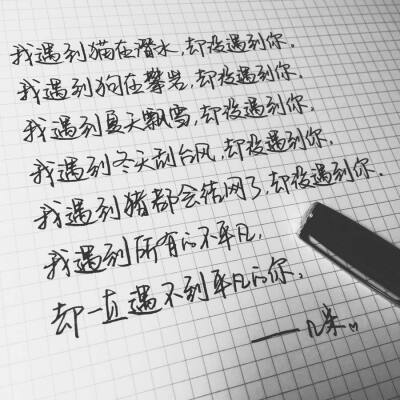 我遇到猫在潜水,却没遇到你。
我遇到狗在攀岩,却没遇到你。
我遇到夏天飘雪,却没遇到你。
我遇到冬天刮台风,却没遇到你。
我遇到猪都会结网了,却没遇到你。
我遇到所有的不平凡,
却一直遇不到平凡的你。
——几朵